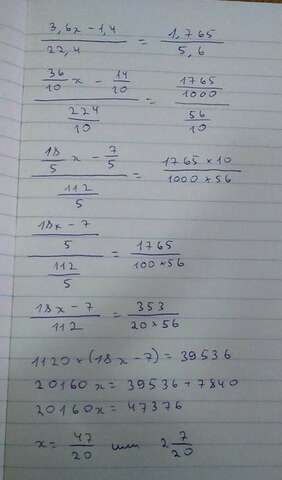 3,6x - 1,4 / 22,4 = 1,765 / 5,6
(36/10 x - 14/10) / (224/10) = (1765/1000) / (56/10)
(18/5 x - 7/5) / (112/5) = 1765 × 10 / 1000 × 56
((18x - 7)/5) / (112/5) = 1765 / 100 × 56
18x - 7 / 112 = 353 / 20 × 56
1120 × (18x - 7) = 39536
20160x = 39536 + 7840
20160x = 47376
x = 47/20 или 2 7/20